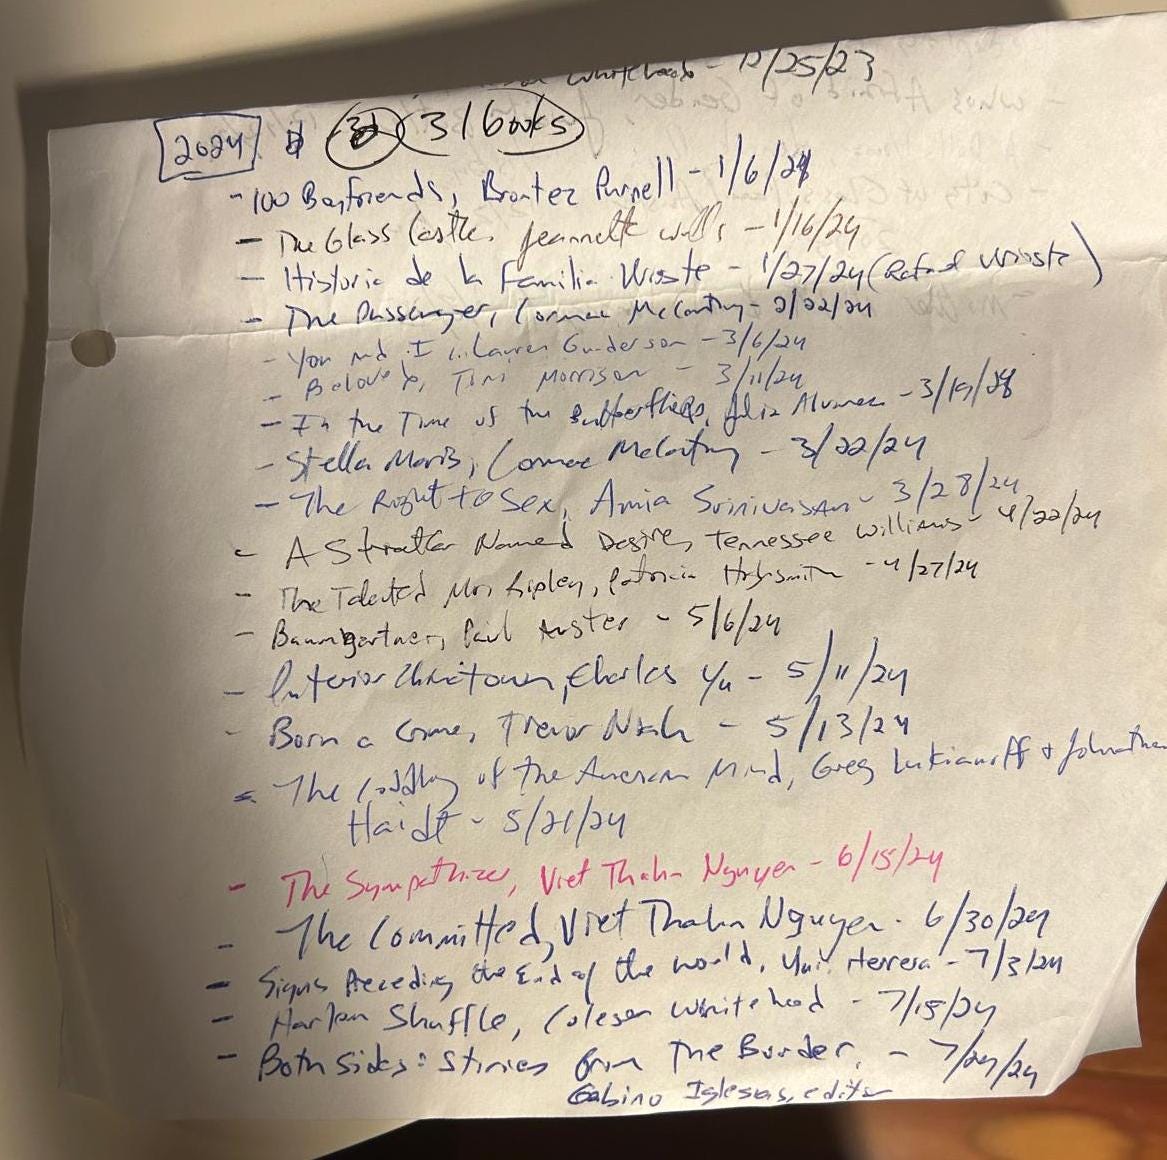 Whitehead - 12/25/23
2024 31 31 Books
- 100 Boyfriends, Brontez Purnell - 1/6/24
- The Glass Castle, Jeannette Walls - 1/16/24
- Historia de la Familia Urioste - 1/27/24 (Rafael Urioste)
- The Passenger, Cormac McCarthy - 2/22/24
- You and I Lauren Gunderson - 3/6/24
- Beloved, Toni Morrison - 3/11/24
- In the Time of the Butterflies, Julia Alvarez - 3/19/24
- Stella Maris, Cormac McCarthy - 3/22/24
- The Right to Sex, Amia Srinivasan - 3/28/24
- A Streetcar Named Desire, Tennessee Williams - 4/22/24
- The Talented Mr. Ripley, Patricia Highsmith - 4/27/24
- Baumgartner, Paul Auster - 5/6/24
- Interior Chinatown, Charles Yu - 5/11/24
- Born a Crime, Trevor Noah - 5/13/24
- The Coddling of the American Mind, Greg Lukianoff + Johnathan
Haidt - 5/21/24
- The Sympathizer, Viet Thahn Nguyen - 6/15/24
- The Committed, Viet Thahn Nguyen - 6/30/24
- Signs Preceding the End of the World, Yuri Herrera - 7/3/24
- Harlem Shuffle, Coleson Whitehead - 7/15/24
- Both Sides: Stories from The Border, - 7/24/24
Gabino Iglesias, editor